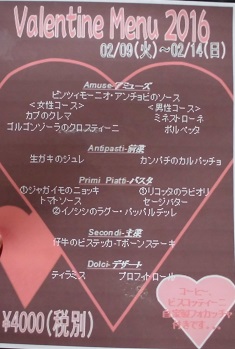 Valentine Menu 2016
02/09(火)～02/14(日)
Amuse-アミューズ
ピンツィモーニオ・アンチョビのソース
＜女性コース＞ ＜男性コース＞
カブのクレマ ミネストローネ
ゴルゴンゾーラのクロスティーニ ポルペッタ
Antipasti-前菜
生ガキのジュレ カンパチのカルパッチョ
Primi Piatti-パスタ
①ジャガイモのニョッキ ①リコッタのラビオリ
トマトソース セージバター
②イノシシのラグー・パッパルデッレ
Secondi-主菜
仔牛のビステッカ-Tボーンステーキ
Dolci-デザート
ティラミス プロフィトロール
コーヒー、
ビスコッティーニ
自家製フォカッチャ
付きです。。。
¥4000(税別)